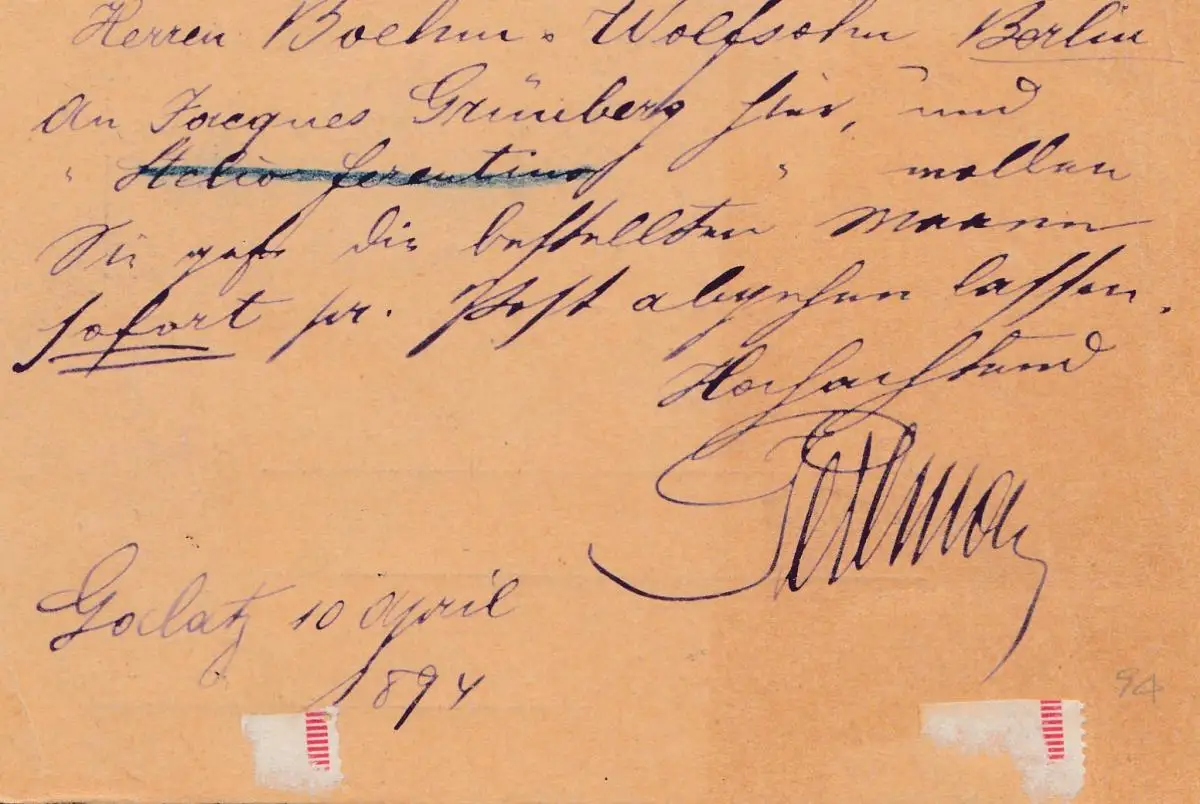 Herren Boehm & Wolfsohn Berlin
An Jacques Grünberg hier, und
" Stelio ferentino " wollen
Sie gefl die bestellten Waaren
sofort pr. Post abgehen lassen.
Hochachtend
Galatz 10 April
1894
94